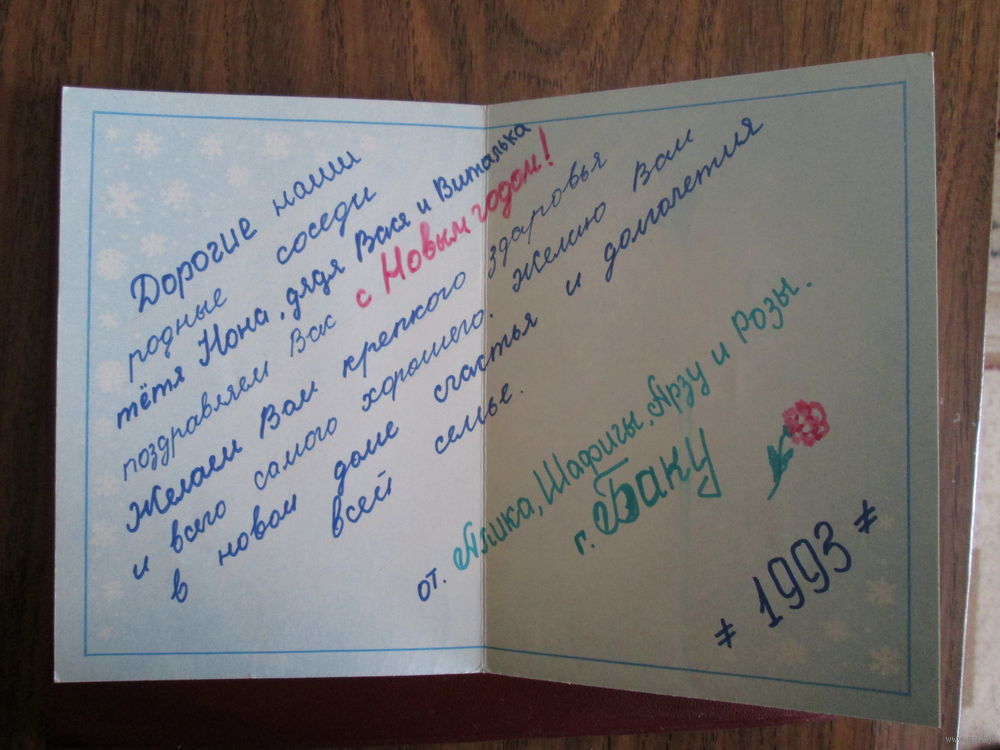 Дорогие наши
родные соседи
тётя Нона, дядя Вася и Виталька
поздравляем Вас с Новым годом!
Желаем Вам крепкого здаровья
и всего самого хорошего. Желаю Вам
в новом доме счастья и долголетия
всей семье.
от. Алика, Шафиги, Арзу и розы.
г. Баку
≠ 1993 ≠